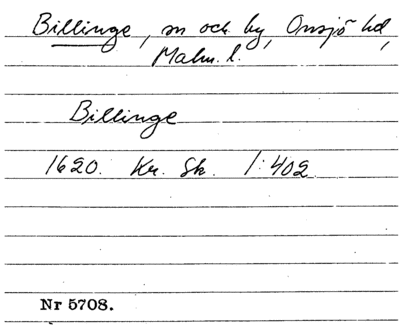 Billinge, sn och by, Onsjö hd,
Malm. l.
Billinge
1620. Kr. Sk. 1:402
Nr 5708.